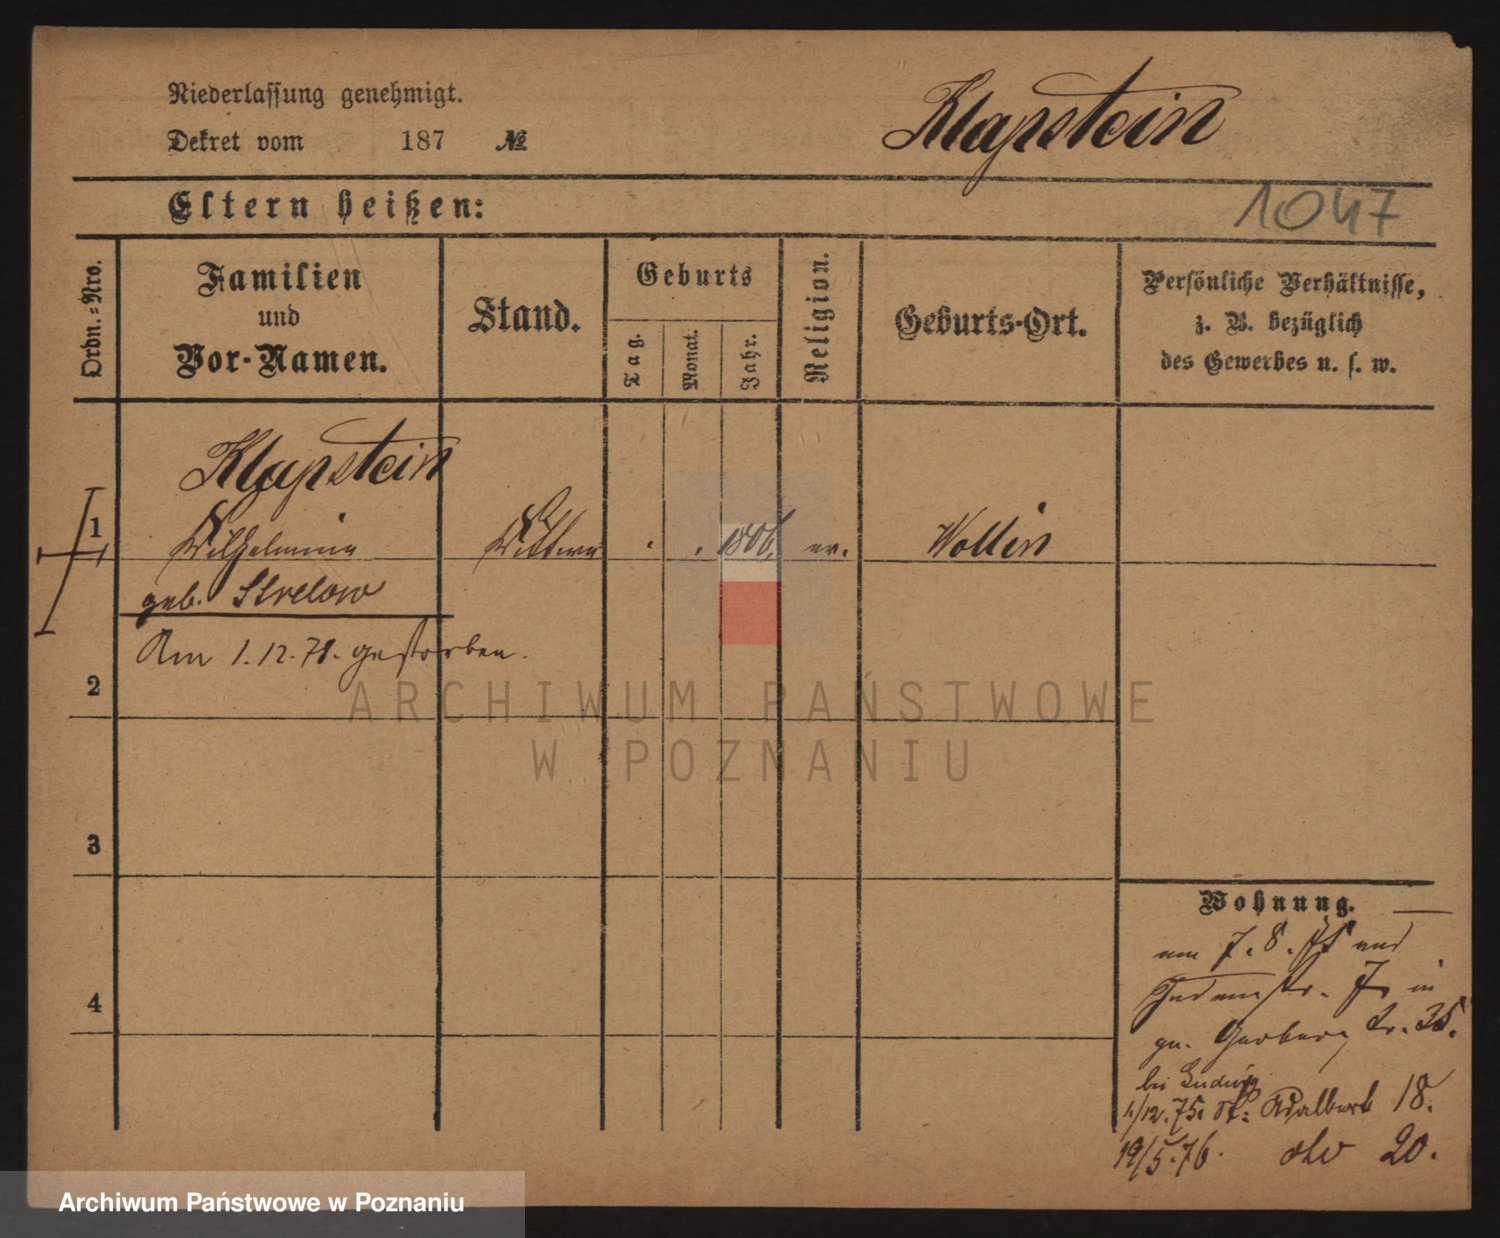 Niederlassung genehmigt.
Dekret vom 187 №
Klapstein
1047
Eltern heißen:
Ordn.-Nro.
Familien
und
Vor-Namen.
Stand.
Geburts
Tag.
Monat.
Jahr.
Religion.
Geburts-Ort.
Persönliche Verhältnisse,
z. B. bezüglich
des Gewerbes u. s. w.
Klapstein
1 Wilhelmine Wittwe 1806. ev. Wollin
geb. Strelow
Am 1.12.78. gestorben.
2
3
4
Wohnung.
am 7. 8. 75 und
in
Gerberstr. 35.
bei Ludwig
1/12. 75. St. Adalbert 18.
19/5. 76. dto 20.
ARCHIWUM PAŃSTWOWE
W POZNANIU
Archiwum Państwowe w Poznaniu